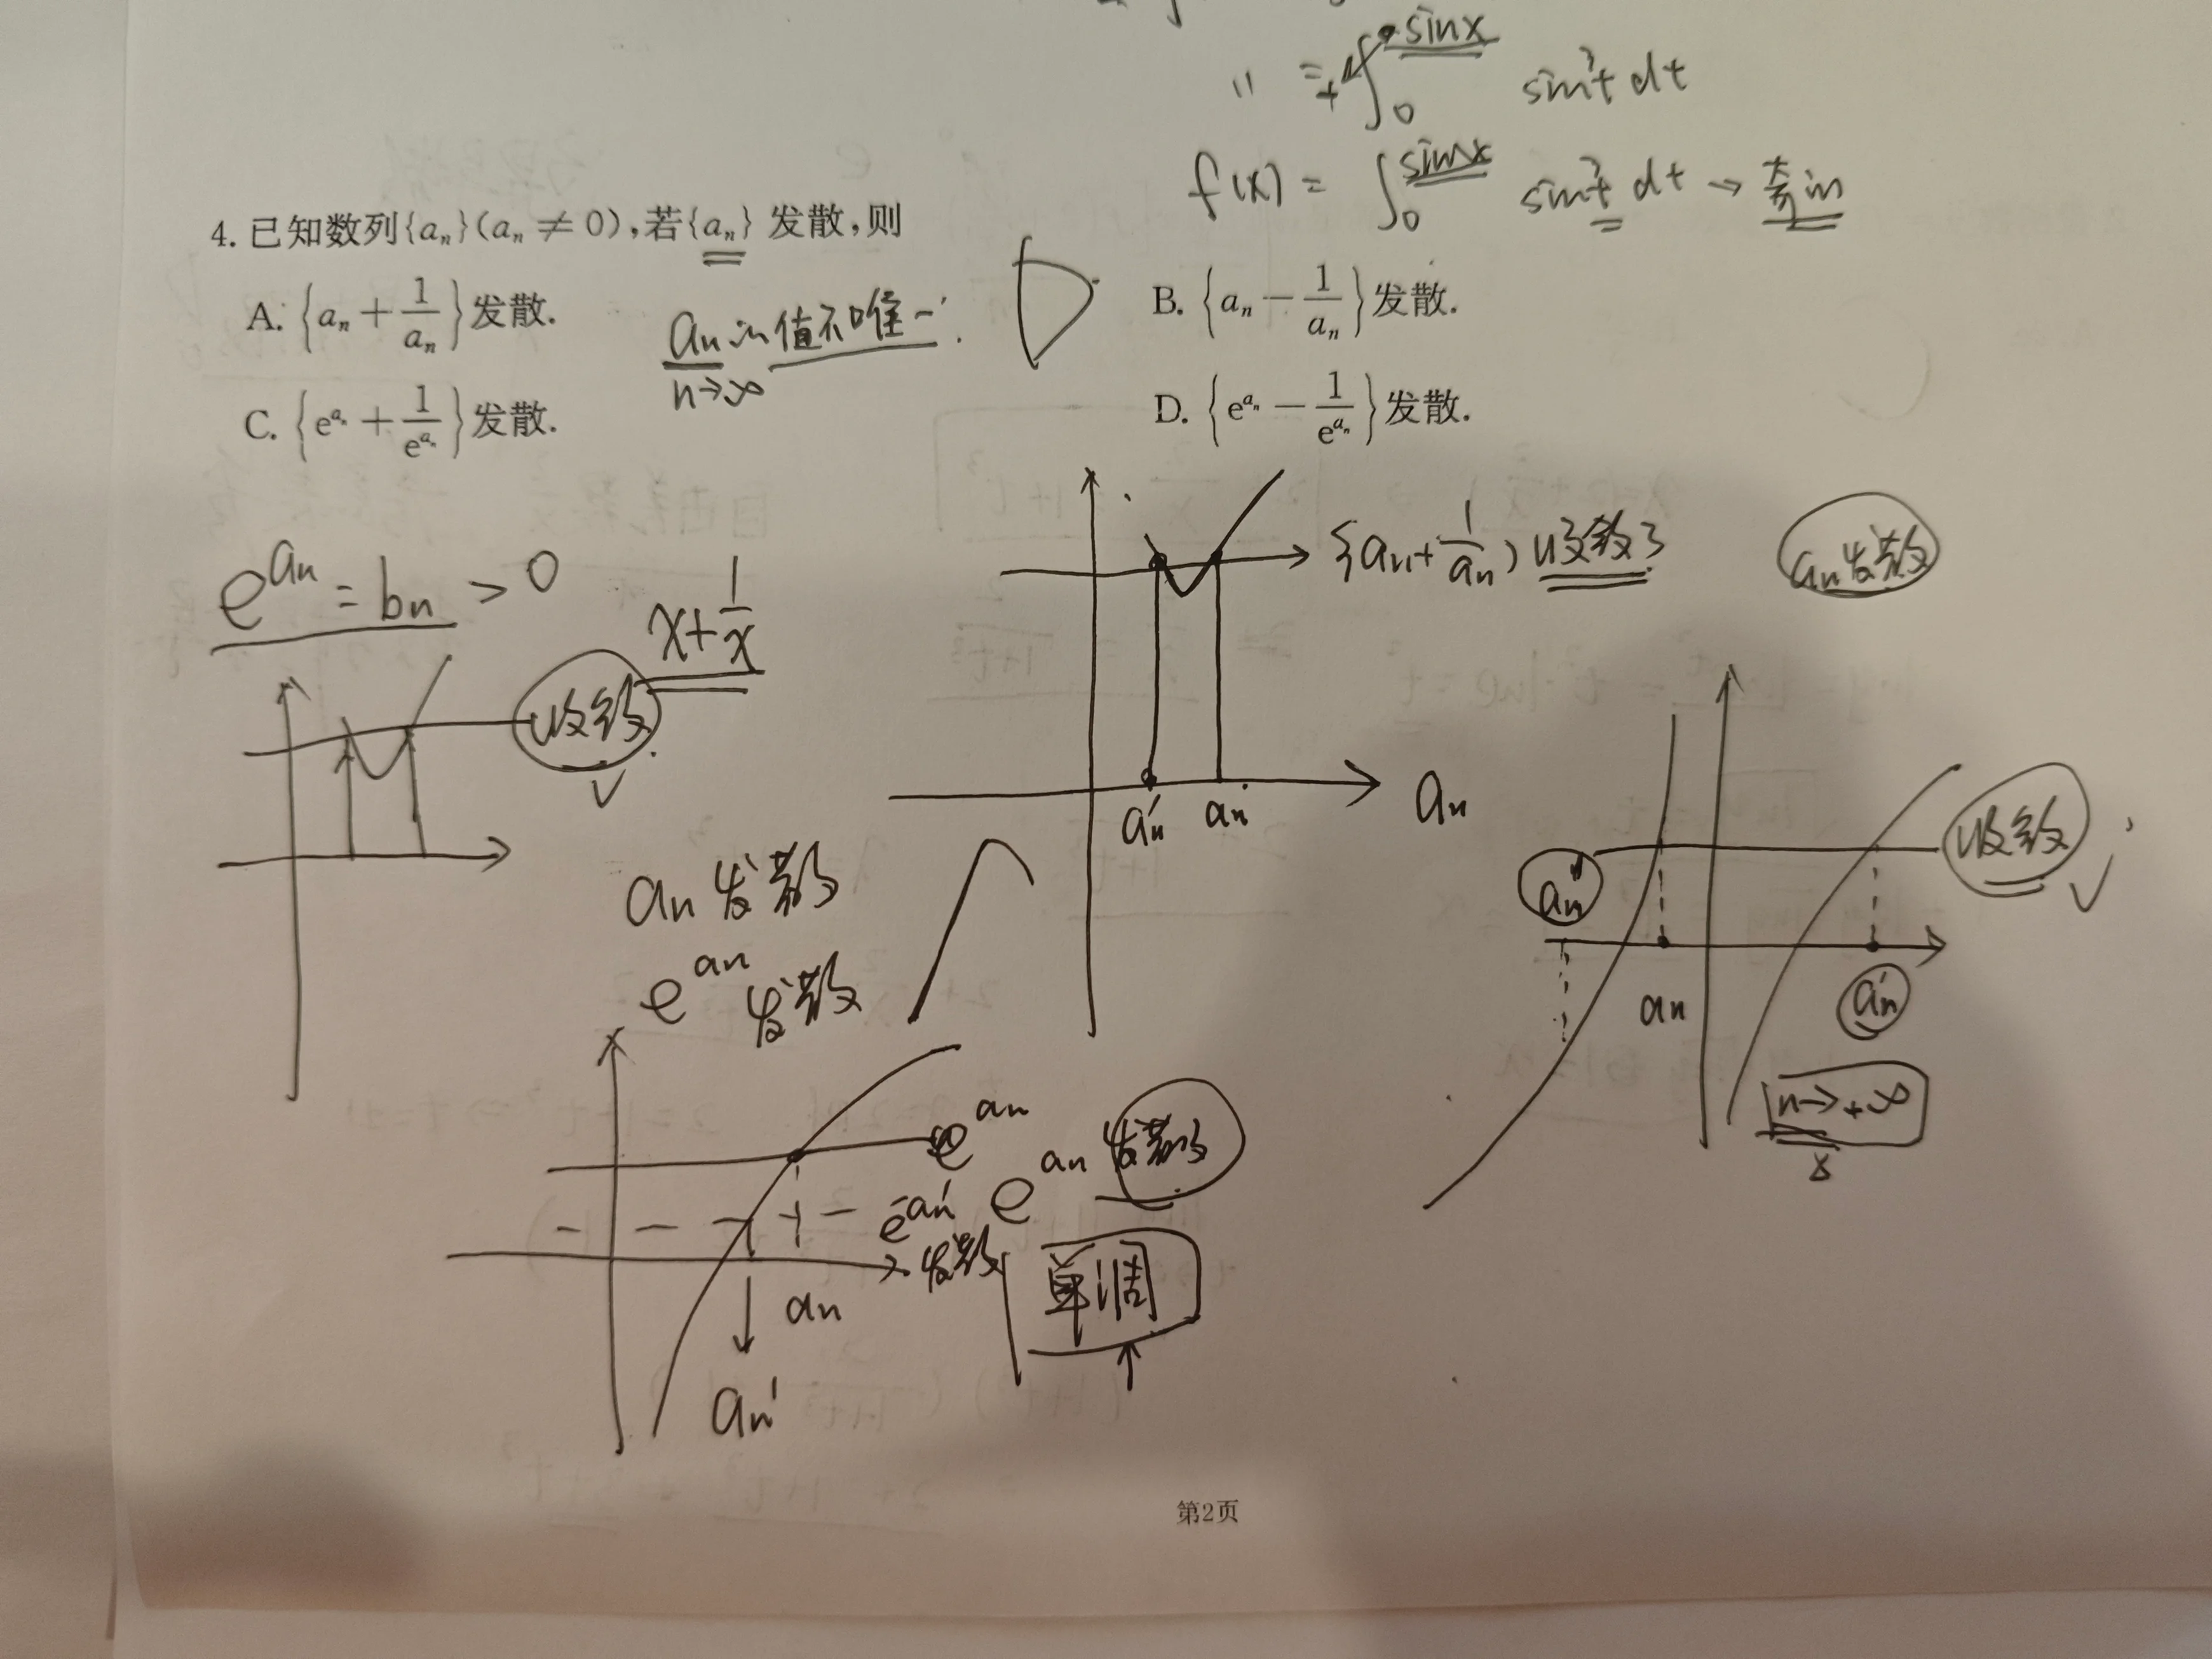 〃 = + ∫₀^{sinx} sin³t dt
f(x) = ∫₀^{sinx} sin³t dt → 奇in
4. 已知数列{aₙ}(aₙ ≠ 0),若{aₙ}发散,则
A. {aₙ + 1/aₙ}发散.
B. {aₙ − 1/aₙ}发散.
aₙ的值不唯一.
n→∞
D
C. {e^{aₙ} + 1/e^{aₙ}}发散.
D. {e^{aₙ} − 1/e^{aₙ}}发散.
{aₙ + 1/aₙ) 收敛
aₙ发散
e^{aₙ} = bₙ > 0
x + 1/x
收敛
aₙ' aₙ aₙ
收敛
aₙ'
aₙ aₙ'
n→+∞
aₙ发散
e^{aₙ}发散
e^{aₙ}
e^{aₙ} 发散
e^{aₙ'}
发散
单调
aₙ
aₙ'
第2页